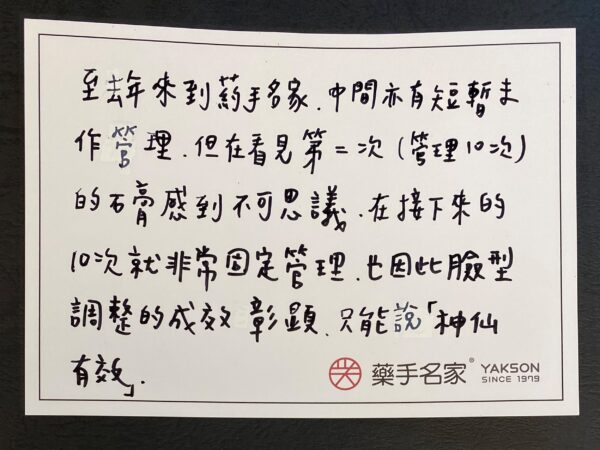 至去年來到药手名家、中間亦有短暫未
作管理、但在看見第二次(管理10次)
的石膏感到不可思議、在接下來的
10次就非常固定管理、也因此臉型
調整的成效彰顯、只能說「神仙
有效」.
藥手名家® YAKSON
SINCE 1979